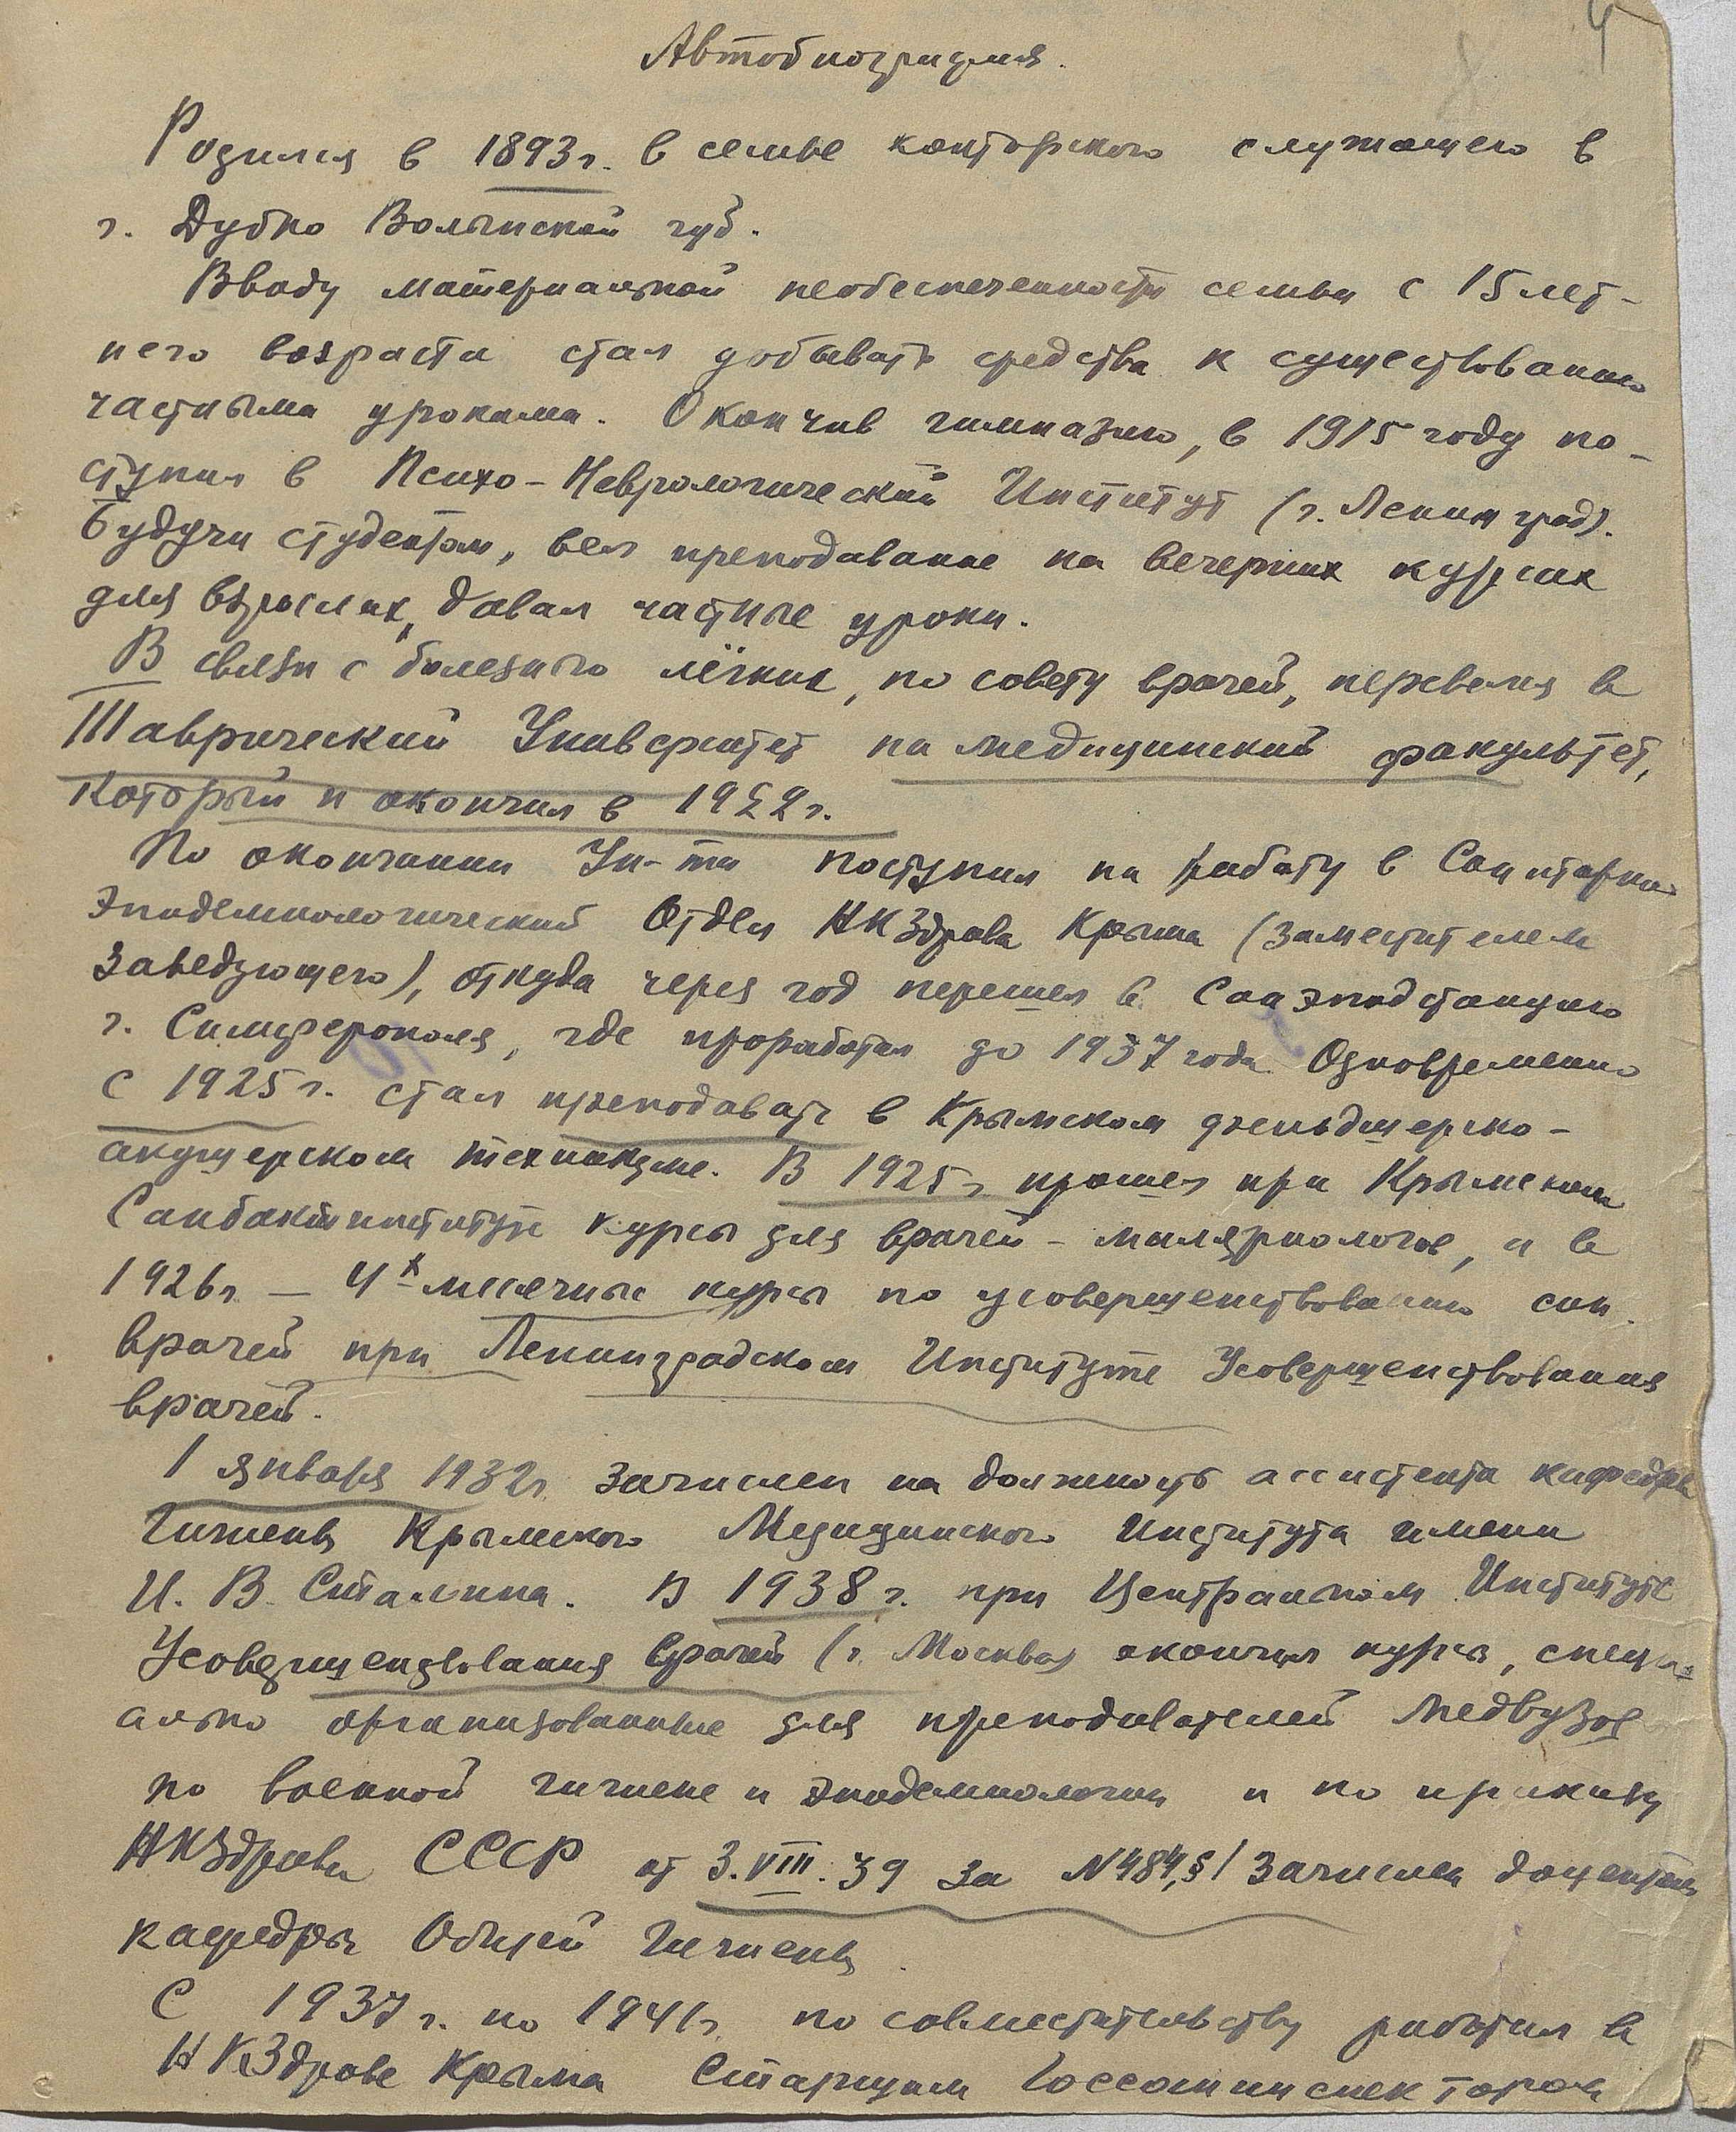 4
Автобиография.
Родился в 1893г. в семье конторского служащего в
г. Дубно Волынской губ.
Ввиду материальной необеспеченности семьи с 15 лет-
него возраста стал добывать средства к существованию
частными уроками. Окончив гимназию, в 1915 году по-
ступил в Психо-Неврологический Институт (г. Ленинград).
Будучи студентом, вел преподавание на вечерних курсах
для взрослых, давал частные уроки.
В связи с болезнью лёгких, по совету врачей, перевелся в
Таврический Университет на медицинский факультет,
который и окончил в 1922г.
По окончании Ун-та поступил на работу в Санитарно-
Эпидемиологический Отдел НКЗдрава Крыма (заместителем
заведующего), откуда через год перешел в Санэпидстанцию
г. Симферополя, где проработал до 1937 года. Одновременно
с 1925г. стал преподавать в Крымском фельдшерско-
акушерском техникуме. В 1925г. прошел при Крымском
Санбактинституте курсы для врачей-маляриологов, и в
1926г. — 4х месячные курсы по усовершенствованию сан.
врачей при Ленинградском Институте Усовершенствования
врачей.
1 января 1932г. зачислен на должность ассистента кафедры
Гигиены Крымского Медицинского Института имени
И. В. Сталина. В 1938 г. при Центральном Институте
Усовершенствования врачей (г. Москва) окончил курсы, специ-
ально организованные для преподавателей Медвузов
по военной гигиене и эпидемиологии и по приказу
НКЗдрава СССР от 3.VIII.39 за N484,§1 зачислен доцентом
кафедры Общей Гигиены.
С 1937 г. по 1941г. по совместительству работал в
НКЗдраве Крыма Старшим Госсанинспектором